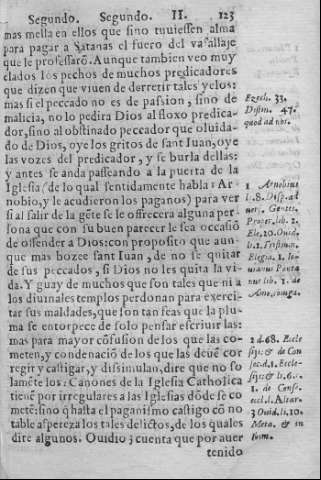 Segundo. Segundo. II. 123
mas mella en ellos que sino tuuiessen alma
para pagar a Satanas el fuero del vassallaje
que le professarõ. Aunque tambien veo muy
elados los pechos de muchos predicadores
que dizen que viuen de derretir tales yelos:
mas si el peccado no es de passion, sino de
malicia, no lo pedira Dios al floxo predica-
dor, sino al obstinado peccador que oluida-
do de Dios, oye los gritos de sant Iuan, oye
las vozes del predicador, y se burla dellas:
y antes se anda passeando a la puerta de la
Iglesia (de lo qual sentidamente habla 1 Ar-
nobio, y le acudieron los paganos) para ver
si al salir de la gẽte se le offrecera alguna per-
sona que con su buen parecer le sea occasiõ
de offender a Dios: con proposito que aun-
que mas bozee sant Iuan, de no se quitar
de sus peccados, si Dios no les quita la vi-
da. Y guay de muchos que son tales que ni a
los diuinales templos perdonan para exerci-
tar sus maldades, que son tan feas que la plu-
ma se entorpece de solo pensar escriuir las:
mas para mayor cõfusion de los que las co-
meten, y condenaciõ de los que las deuẽ cor
regir y castigar, y dissimulan, dire que no so
lamẽte los 2 Canones de la Iglesia Catholica
tienẽ por irregulares a las Iglesias dõde se co
metẽ: sino q̃ hasta el paganismo castigo cõ no
table aspereza los tales delictos, de los quales
dire algunos. Ouidio 3 cuenta que por auer
tenido
Ezech. 33.
Distin. 47.
quod ad nr.
1 Arnobius
l. 8. Disp. ad
Proper. lib. 2.
Ele. 10. Ouid.
lib. 1. de
2 d. 68. Eccle
siis: & de Con
sec. d. 1. Eccle-
siis: & li. 6. t.
1. de Conse.
eccl. l. Altar.
3 Ouid. li. 10.
Meta. & in